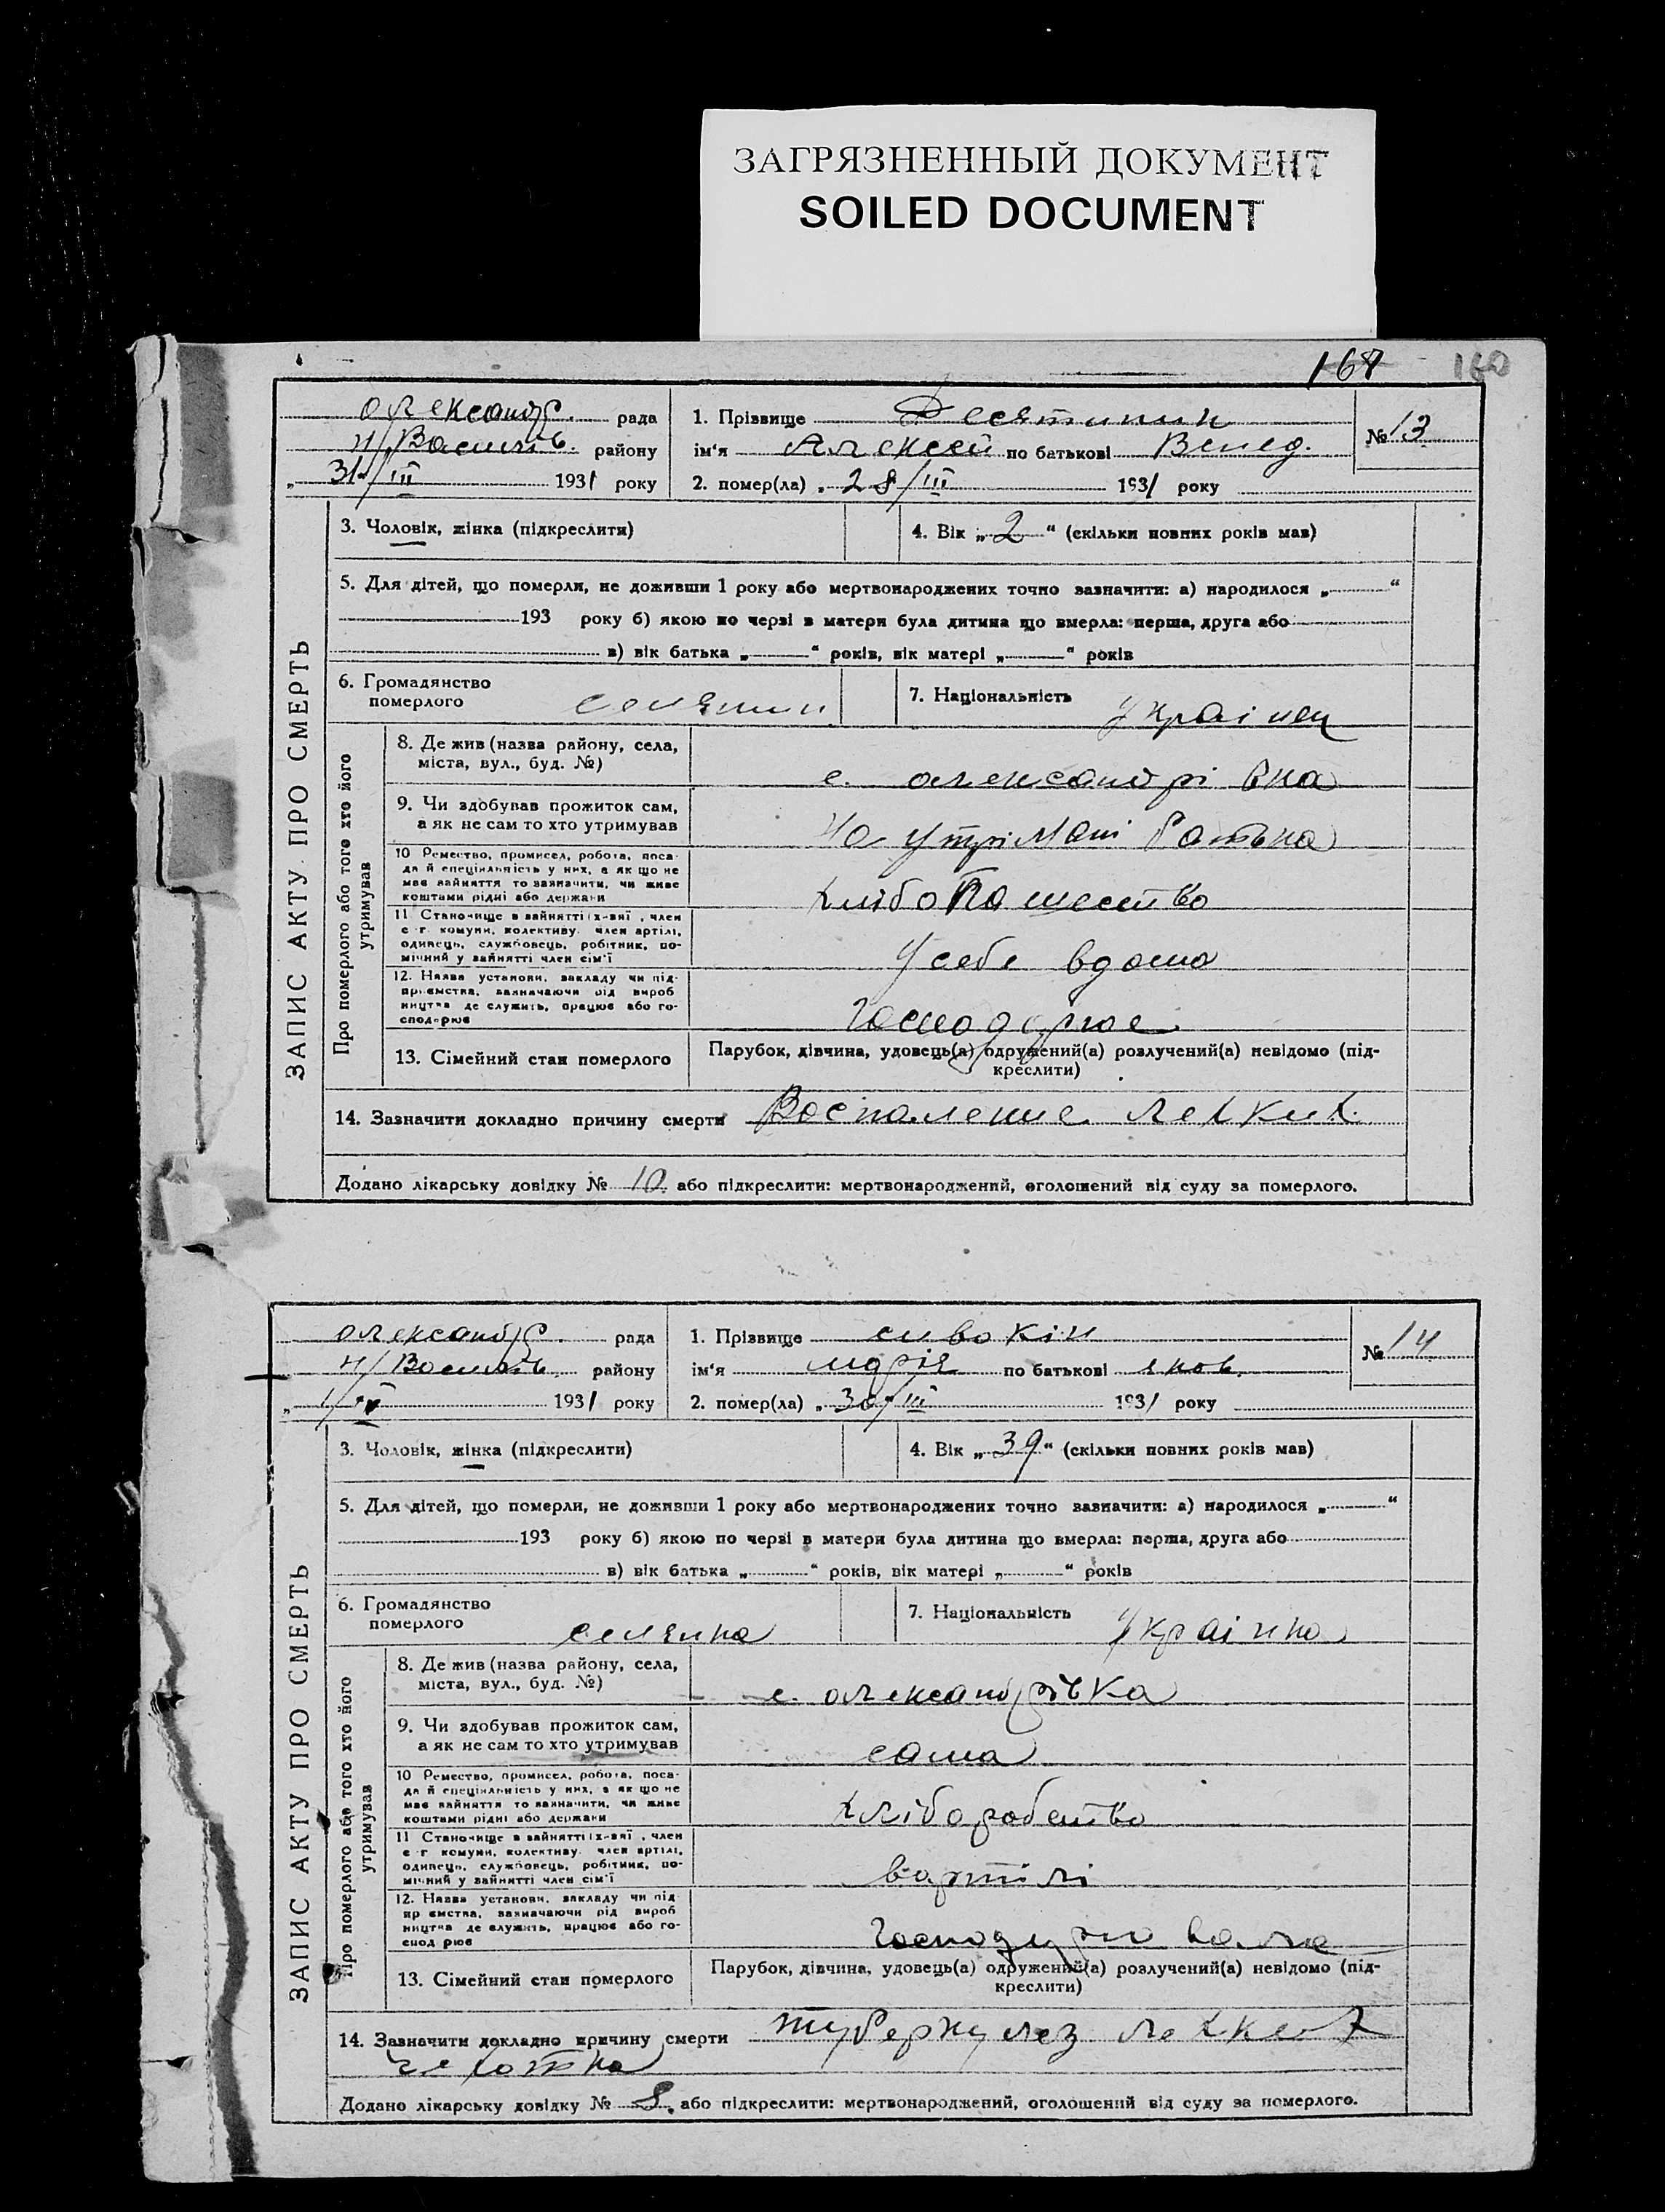 ЗАГРЯЗНЕННЫЙ ДОКУМЕНТ
SOILED DOCUMENT
160
ЗАПИС АКТУ ПРО СМЕРТЬ
Олександр. рада
Н/Василів. району
„31“/III 1931 року
1. Прізвище Десятинин
ім'я Алексей по батькові Венед.
№ 13
2. помер(ла) „28/III 1931 року
3. Чоловік, жінка (підкреслити)
4. Вік „2“ (скільки повних років мав)
5. Для дітей, що померли, не доживши 1 року або мертвонароджених точно зазначити: а) народилося „ “
193 року б) якою по черзі в матери була дитина що вмерла: перша, друга або
в) вік батька „ “ років, вік матері „ “ років
6. Громадянство померлого селянин
7. Національність Українец
Про померлого або того хто його утримував
8. Де жив (назва району, села,
міста, вул., буд. №)
с. Олександрівка
9. Чи здобував прожиток сам,
а як не сам то хто утримував
На утрімані батька
10 Ремество, промисел, робота, поса-
да й спеціяльність у них, а як що не
має зайняття то зазначити, чи живе
коштами рідні або держави
хлібопашество
11 Становище в зайнятті (х-вяї, член
с г. комуни, колективу. член артілі,
одинець, службовець, робітник, по-
мічний у зайнятті член сім'ї
У себе вдома
12. Назва установи, закладу чи під-
приємства, зазначаючи від вироб
ництва де служить, працює або го-
сподарює
Господарює
13. Сімейний стан померлого
Парубок, дівчина, удовець(а) одружений(а) розлучений(а) невідомо (під-
креслити)
14. Зазначити докладно причину смерти Воспаление лехких.
Додано лікарську довідку № 10. або підкреслити: мертвонароджений, оголошений від суду за померлого.
ЗАПИС АКТУ ПРО СМЕРТЬ
Олександр. рада
Н/Василів. району
„1/IV 1931 року
1. Прізвище Сивокін
ім'я Марія по батькові Яков.
№ 14
2. помер(ла) „30“/III 1931 року
3. Чоловік, жінка (підкреслити)
4. Вік „39“ (скільки повних років мав)
5. Для дітей, що померли, не доживши 1 року або мертвонароджених точно зазначити: а) народилося „ “
193 року б) якою по черзі в матери була дитина що вмерла: перша, друга або
в) вік батька „ “ років, вік матері „ “ років
6. Громадянство померлого селянка
7. Національність Українка
Про померлого або того хто його утримував
8. Де жив (назва району, села,
міста, вул., буд. №)
с. Олександрівка
9. Чи здобував прожиток сам,
а як не сам то хто утримував
сама
10 Ремество, промисел, робота, поса-
да й спеціяльність у них, а як що не
має зайняття то зазначити, чи живе
коштами рідні або держави
хліборобство
11 Становище в зайнятті (х-вяї, член
с г комуни, колективу. член артілі,
одинець, службовець, робітник, по-
мічний у зайнятті член сім'ї
вартілі
12. Назва установи, закладу чи під
приємства, зазначаючи від вироб
ництва де служить, працює або го-
сподарює
Господарювала
13. Сімейний стан померлого
Парубок, дівчина, удовець(а) одружений(а) розлучений(а) невідомо (під-
креслити)
14. Зазначити докладно причину смерти туберкулез лехких
Додано лікарську довідку № 8. або підкреслити: мертвонароджений, оголошений від суду за померлого.